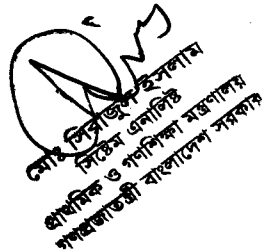 মোঃ সিরাজুল ইসলাম
সিষ্টেম এনালিষ্ট
প্রাথমিক ও গণশিক্ষা মন্ত্রণালয়
গণপ্রজাতন্ত্রী বাংলাদেশ সরকার